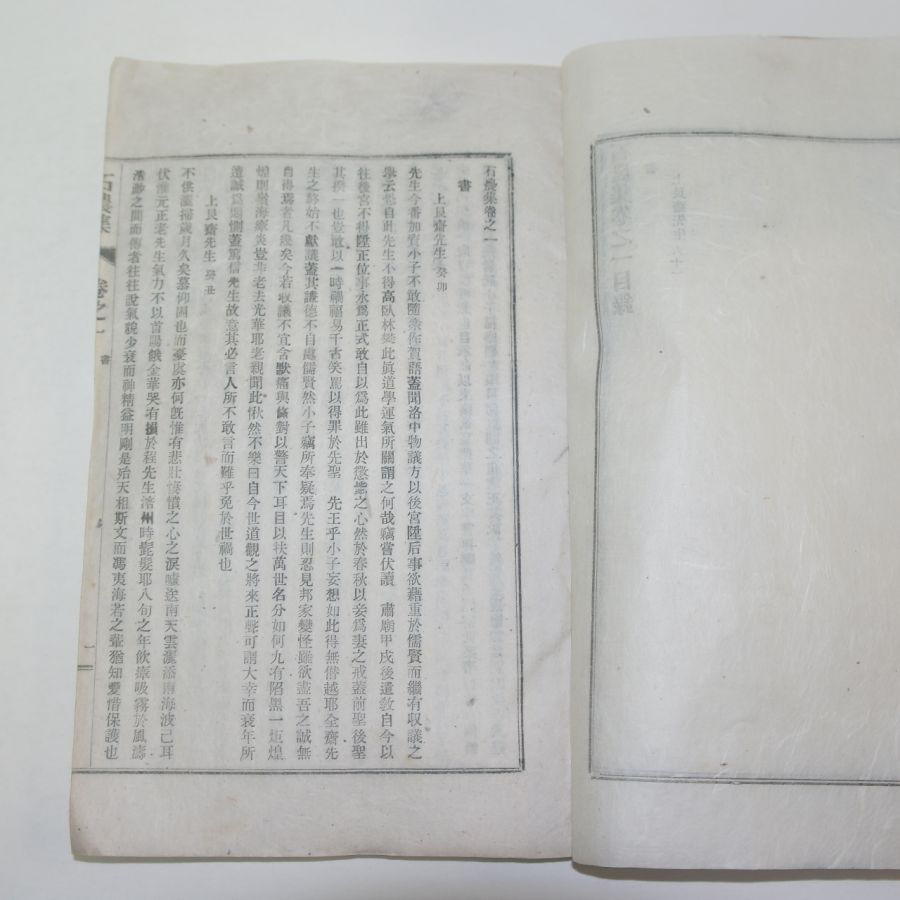 石農集卷之一
書
上艮齋先生 癸卯
先生今番加資小子不敢隨衆作賀語蓋聞洛中物議方以後宮陞后事欲藉重於儒賢而繼有収議之
擧云然自此先生不得高臥林樊此眞道學運氣所關謂之何哉竊嘗伏讀 肅廟甲戌後遣敎自今以
往後宮不得陞正位事永爲正式敢自以爲此雖出於懲毖之心然於春秋以妾爲妻之戒蓋前聖後聖
其揆一也豈敢以一時禍福易千古笑罵以得罪於先聖 先王乎小子妄想如此得無僭越耶全齋先
生之終始不獻議蓋其謙德不自處儒賢然小子竊所奉疑焉先生則忍見邦家變怪雖欲盡吾之誠無
自得焉者凡幾矣今若収議不宜含默痛與條對以警天下耳目以扶萬世名分如何九有陷黑一炬煌
煌則嶺海療炎豈非老去光華耶老親聞此愀然不樂曰自今世道觀之將來正聲可謂大幸而衰年所
遭誠爲惻蓋篤信先生故意其必言人所不敢言而難乎免於世禍也
上艮齋先生 癸丑
不供灑掃歲月久矣慕仰固也而憂虞亦何旣惟有悲壯悽憤之心之淚噓送南天雲灑添南海波已耳
伏惟元正老先生氣力不以首陽餓金華哭有損於程先生涪州時髭髮耶八旬之年飮瘴吸霧於風濤
渺之間而傳者往往說氣貌少衰而神精益明剛是殆天相斯文而馮夷海若之輩猶知愛惜保護也
石農集
卷之一
書
一
目錄